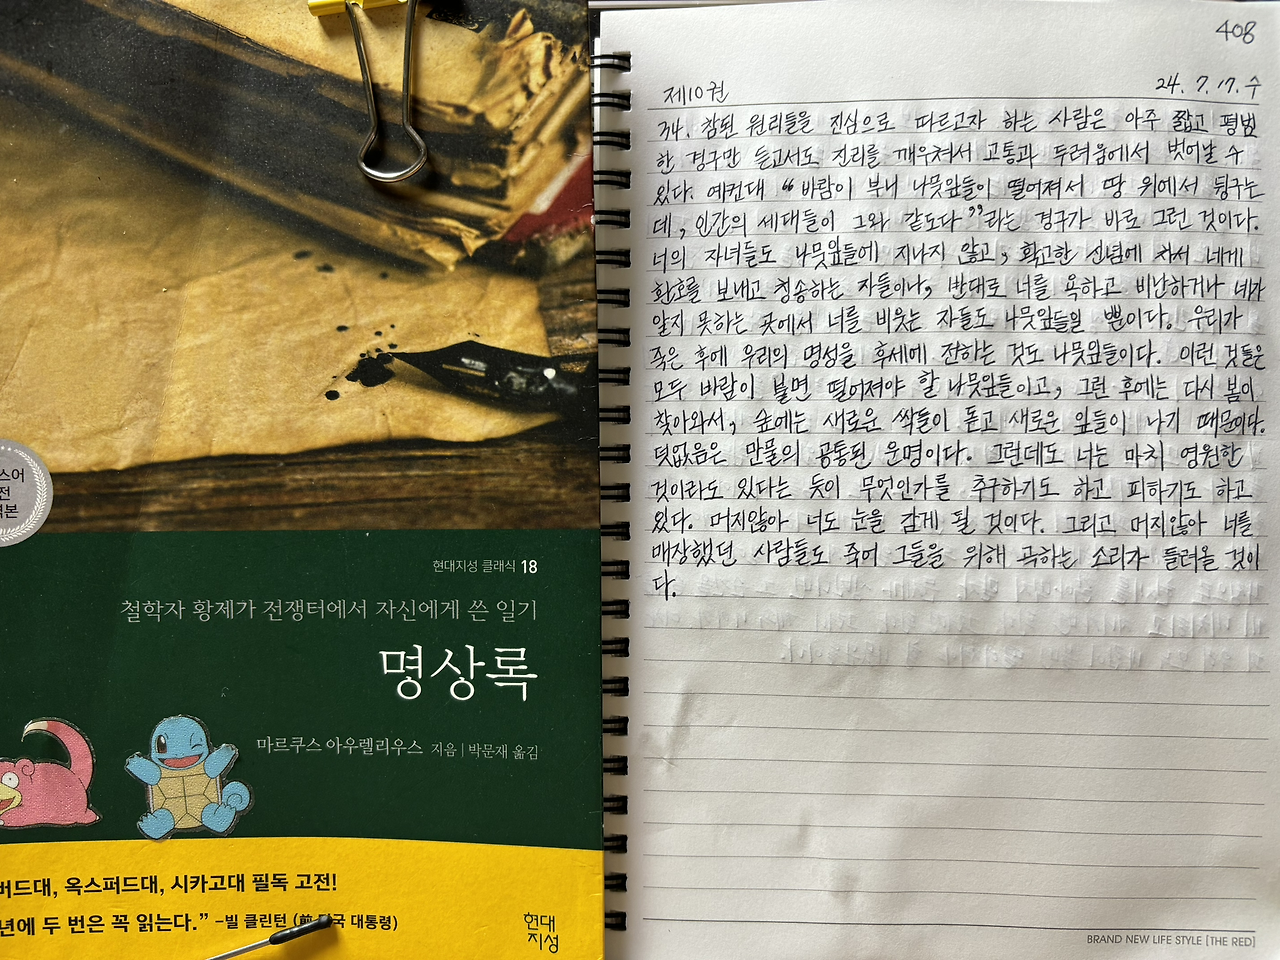 스어
전
역본
현대지성 클래식 18
철학자 황제가 전쟁터에서 자신에게 쓴 일기
명상록
마르쿠스 아우렐리우스 지음 | 박문재 옮김
버드대, 옥스퍼드대, 시카고대 필독 고전!
년에 두 번은 꼭 읽는다.” –빌 클린턴 (前 국 대통령)
현대
지성
408
제10권 24. 7. 17. 수
34. 참된 원리들을 진심으로 따르고자 하는 사람은 아주 짧고 평범
한 경구만 듣고서도 진리를 깨우쳐서 고통과 두려움에서 벗어날 수
있다. 예컨대 “바람이 부니 나뭇잎들이 떨어져서 땅 위에서 뒹구는
데, 인간의 세대들이 그와 같도다”라는 경구가 바로 그런 것이다.
너의 자녀들도 나뭇잎들에 지나지 않고, 확고한 신념에 차서 네게
환호를 보내고 칭송하는 자들이나, 반대로 너를 욕하고 비난하거나 네가
알지 못하는 곳에서 너를 비웃는 자들도 나뭇잎들일 뿐이다. 우리가
죽은 후에 우리의 명성을 후세에 전하는 것도 나뭇잎들이다. 이런 것들은
모두 바람이 불면 떨어져야 할 나뭇잎들이고, 그런 후에는 다시 봄이
찾아와서, 숲에는 새로운 싹들이 돋고 새로운 잎들이 나기 때문이다.
덧없음은 만물의 공통된 운명이다. 그런데도 너는 마치 영원한
것이라도 있다는 듯이 무엇인가를 추구하기도 하고 피하기도 하고
있다. 머지않아 너도 눈을 감게 될 것이다. 그리고 머지않아 너를
매장했던 사람들도 죽어 그들을 위해 곡하는 소리가 들려올 것이
다.
BRAND NEW LIFE STYLE [THE RED]